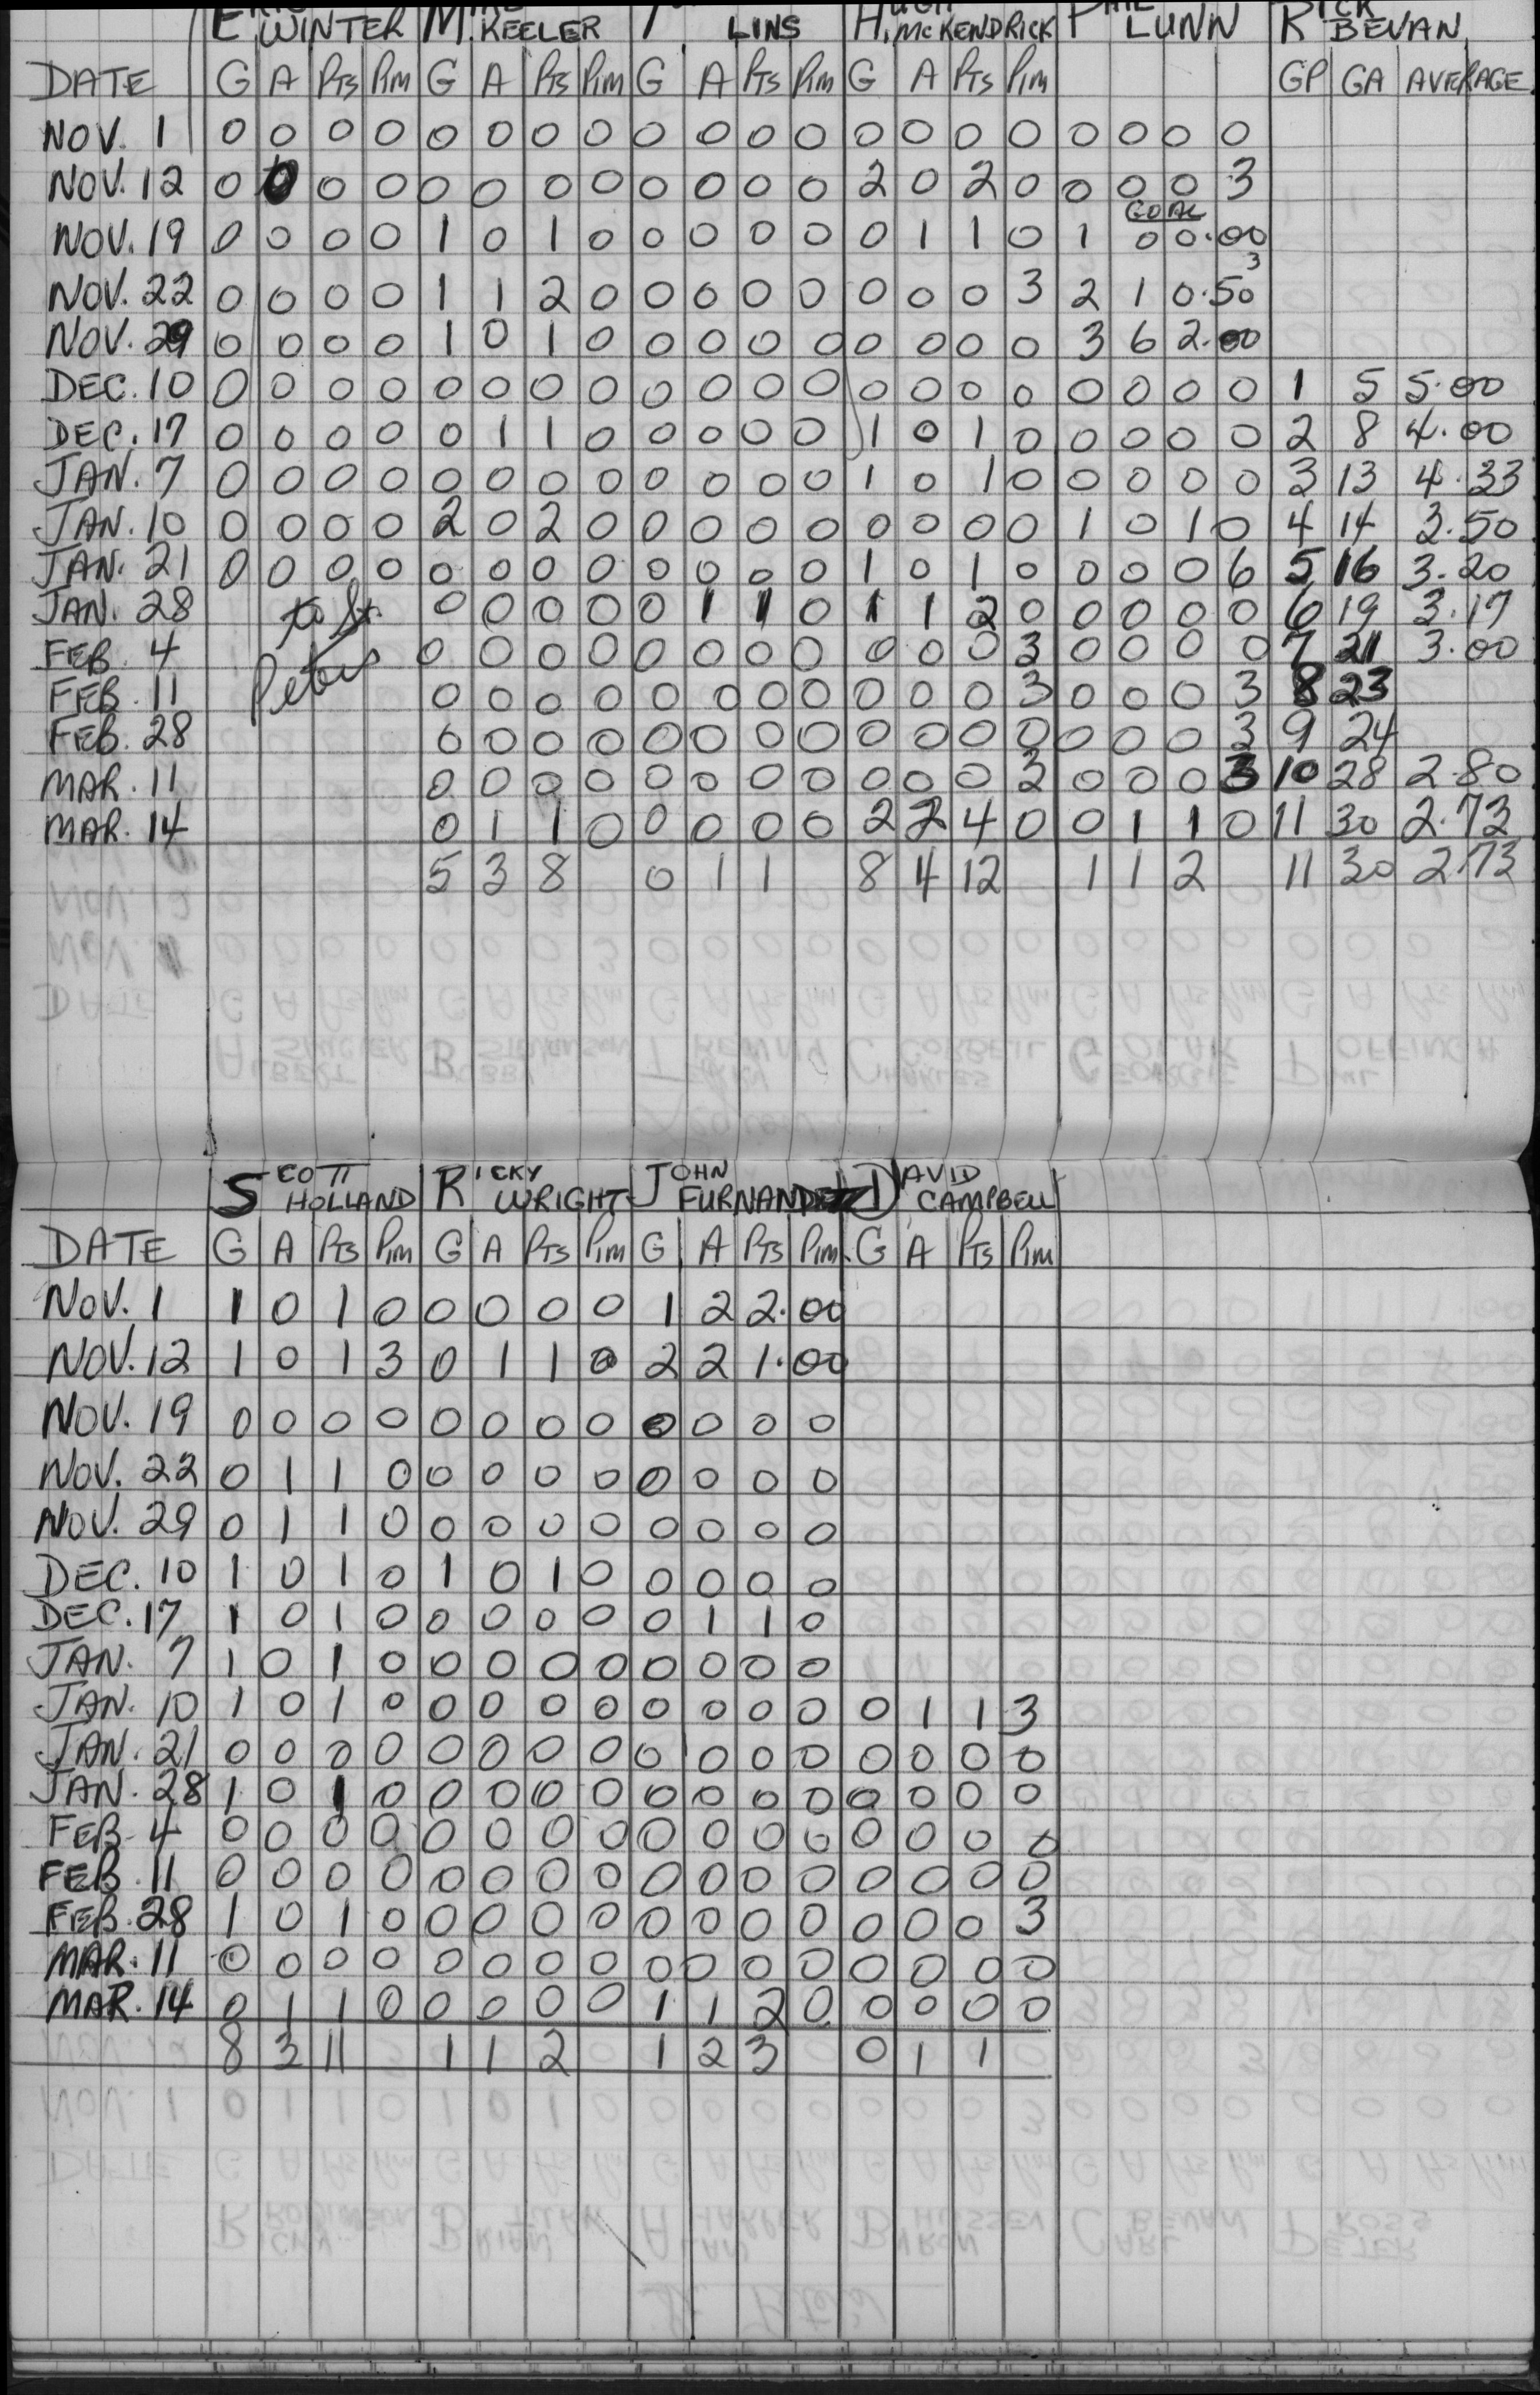 WINTER M. KEELER LINS H. McKENDRICK LUNN R BEVAN
DATE G A Pts Pim G A Pts Pim G A Pts Pim G A Pts Pim GP GA AVERAGE
NOV. 1 0 0 0 0 0 0 0 0 0 0 0 0 0 0 0 0 0 0 0 0
NOV. 12 0 0 0 0 0 0 0 0 0 0 0 0 2 0 2 0 0 0 0 3
GOAL
NOV. 19 0 0 0 0 1 0 1 0 0 0 0 0 0 1 1 0 1 0 0.00
3
NOV. 22 0 0 0 0 1 1 2 0 0 0 0 0 0 0 0 3 2 1 0.50
NOV. 29 0 0 0 0 1 0 1 0 0 0 0 0 0 0 0 0 3 6 2.00
DEC. 10 0 0 0 0 0 0 0 0 0 0 0 0 0 0 0 0 0 0 0 0 1 5 5.00
DEC. 17 0 0 0 0 0 1 1 0 0 0 0 0 1 0 1 0 0 0 0 0 2 8 4.00
JAN. 7 0 0 0 0 0 0 0 0 0 0 0 0 1 0 1 0 0 0 0 0 3 13 4.33
JAN. 10 0 0 0 0 2 0 2 0 0 0 0 0 0 0 0 0 1 0 1 0 4 14 3.50
JAN. 21 0 0 0 0 0 0 0 0 0 0 0 0 1 0 1 0 0 0 0 6 5 16 3.20
JAN. 28 to St. 0 0 0 0 0 1 1 0 1 1 2 0 0 0 0 0 6 19 3.17
FEB. 4 Peters 0 0 0 0 0 0 0 0 0 0 0 3 0 0 0 0 7 21 3.00
FEB. 11 0 0 0 0 0 0 0 0 0 0 0 3 0 0 0 3 8 23
FEB. 28 0 0 0 0 0 0 0 0 0 0 0 0 0 0 0 3 9 24
MAR. 11 0 0 0 0 0 0 0 0 0 0 0 3 0 0 0 3 10 28 2.80
MAR. 14 0 1 1 0 0 0 0 0 2 2 4 0 0 1 1 0 11 30 2.73
5 3 8 0 1 1 8 4 12 1 1 2 11 30 2.73
SCOTT HOLLAND RICKY WRIGHT JOHN FURNANDEZ DAVID CAMPBELL
DATE G A Pts Pim G A Pts Pim G A Pts Pim G A Pts Pim
NOV. 1 1 0 1 0 0 0 0 0 1 2 2.00
NOV. 12 1 0 1 3 0 1 1 0 2 2 1.00
NOV. 19 0 0 0 0 0 0 0 0 0 0 0 0
NOV. 22 0 1 1 0 0 0 0 0 0 0 0 0
NOV. 29 0 1 1 0 0 0 0 0 0 0 0 0
DEC. 10 1 0 1 0 1 0 1 0 0 0 0 0
DEC. 17 1 0 1 0 0 0 0 0 0 1 1 0
JAN. 7 1 0 1 0 0 0 0 0 0 0 0 0
JAN. 10 1 0 1 0 0 0 0 0 0 0 0 0 0 1 1 3
JAN. 21 0 0 0 0 0 0 0 0 0 0 0 0 0 0 0 0
JAN. 28 1 0 1 0 0 0 0 0 0 0 0 0 0 0 0 0
FEB. 4 0 0 0 0 0 0 0 0 0 0 0 0 0 0 0 0
FEB. 11 0 0 0 0 0 0 0 0 0 0 0 0 0 0 0 0
FEB. 28 1 0 1 0 0 0 0 0 0 0 0 0 0 0 0 3
MAR. 11 0 0 0 0 0 0 0 0 0 0 0 0 0 0 0 0
MAR. 14 0 1 1 0 0 0 0 0 1 1 2 0 0 0 0 0
8 3 11 1 1 2 1 2 3 0 1 1